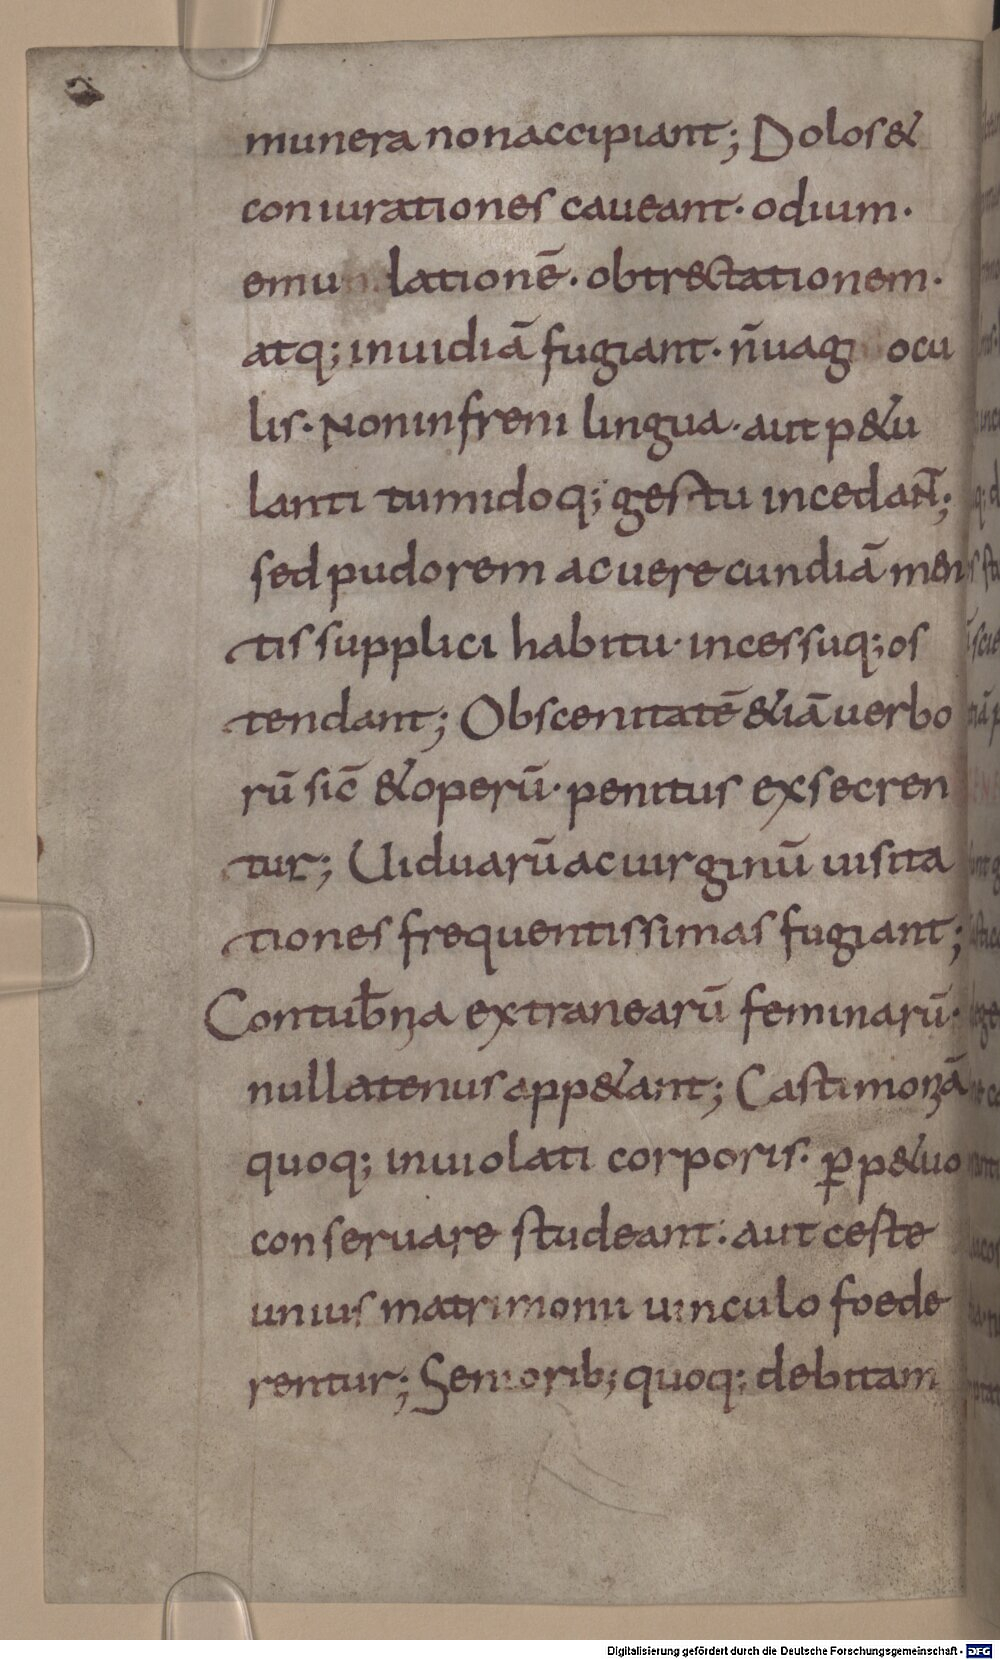 munera non accipiant; Dolos &
coniurationes caueant· odium·
emu lationē· obtrectationem·
atq; inuidiā fugiant· n̄ uagi ocu
lis· Non infreni lingua· aut p&u
lanti tumidoq; gestu incedan̄t;
sed pudorem ac uerecundiā men
tis supplici habitu· incessuq; os
tendant; Obscenitatē &iā uerbo
rū sic̄ & operū· penitus exsecren
tur; Uiduarū ac uirginū uisita
tiones frequentissimas fugiant;
Contub̄nia extranearū feminarū·
nullatenus app&ant; Castimoniā
quoq; inuiolati corporis· ꝑp&uo
conseruare studeant· aut ceste
unius matrimonii uinculo foede
rentur; Seniorib; quoq; debitam
Digitalisierung gefördert durch die Deutsche Forschungsgemeinschaft - DFG